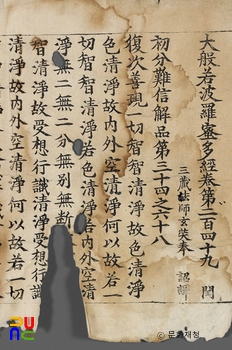 大般若波羅蜜多經卷第二百四十九 閏
三藏法師玄奘奉 詔譯
初分難信解品第三十四之六十八
復次善現一切智智清淨故色清淨
色清淨故內外空清淨何以故若一
切智智清淨若色清淨若內外空清
淨無二無二分無別無斷
智清淨故受想行識清淨受想行識
清淨故內外空清淨何以故若一切
© 문화재청